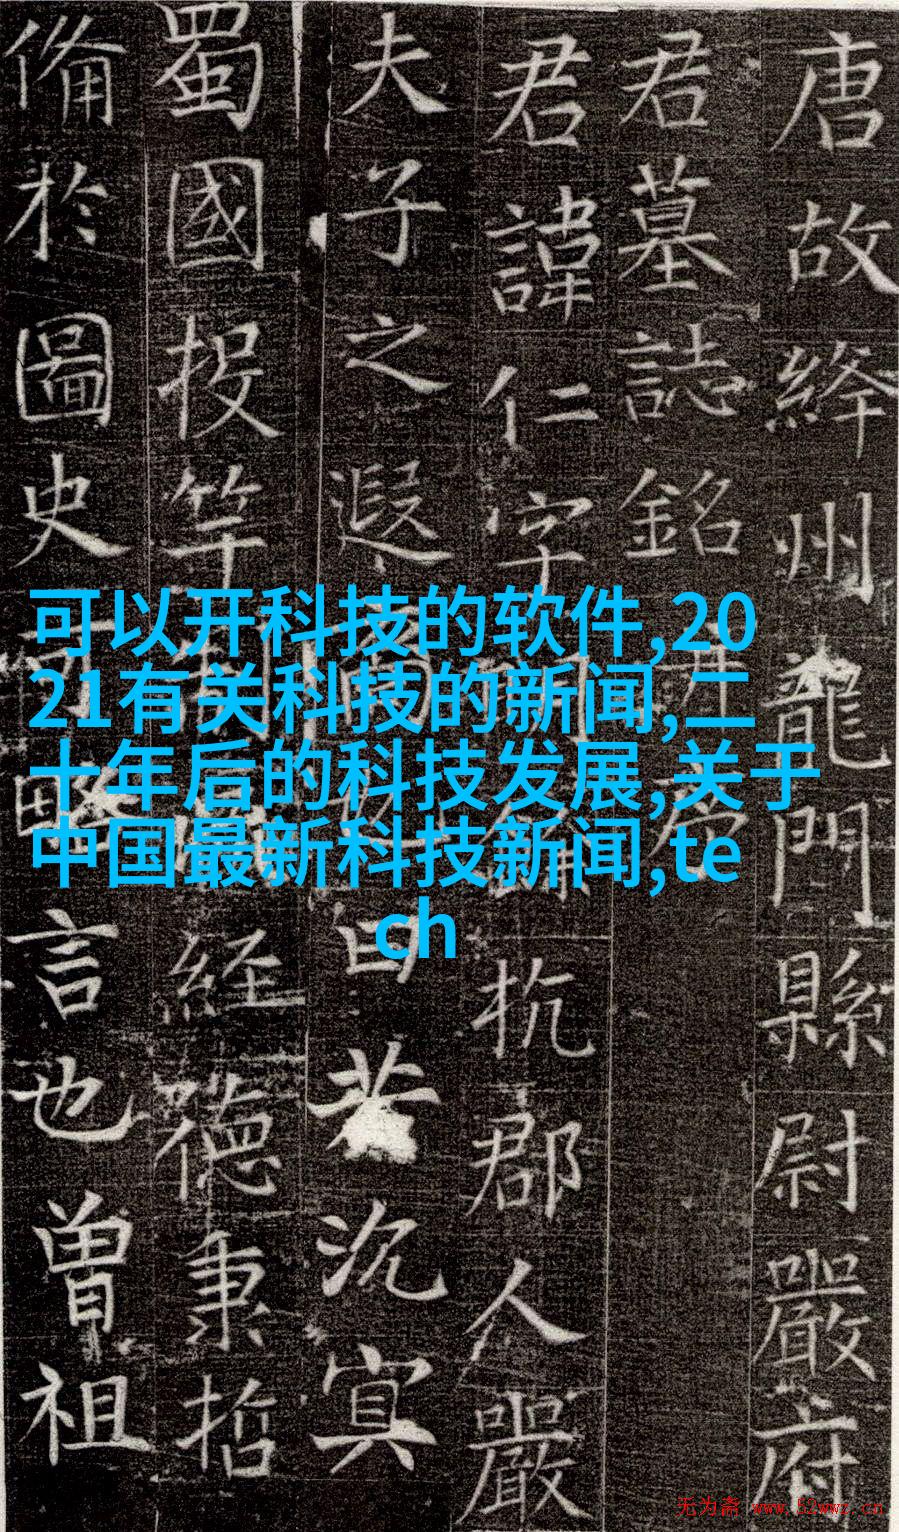 唐故絳州龍門縣尉嚴府
君墓誌銘并序
君諱仁字明餘杭郡人嚴
夫子之遐裔曰若沉冥
蜀國投竿経德秉哲
備於圖史可略言也曾祖
可以开科技的软件,20
21有关科技的新闻,二
十年后的科技发展,关于
中国最新科技新闻,te
ch
无为斋 www.52wwz.cn